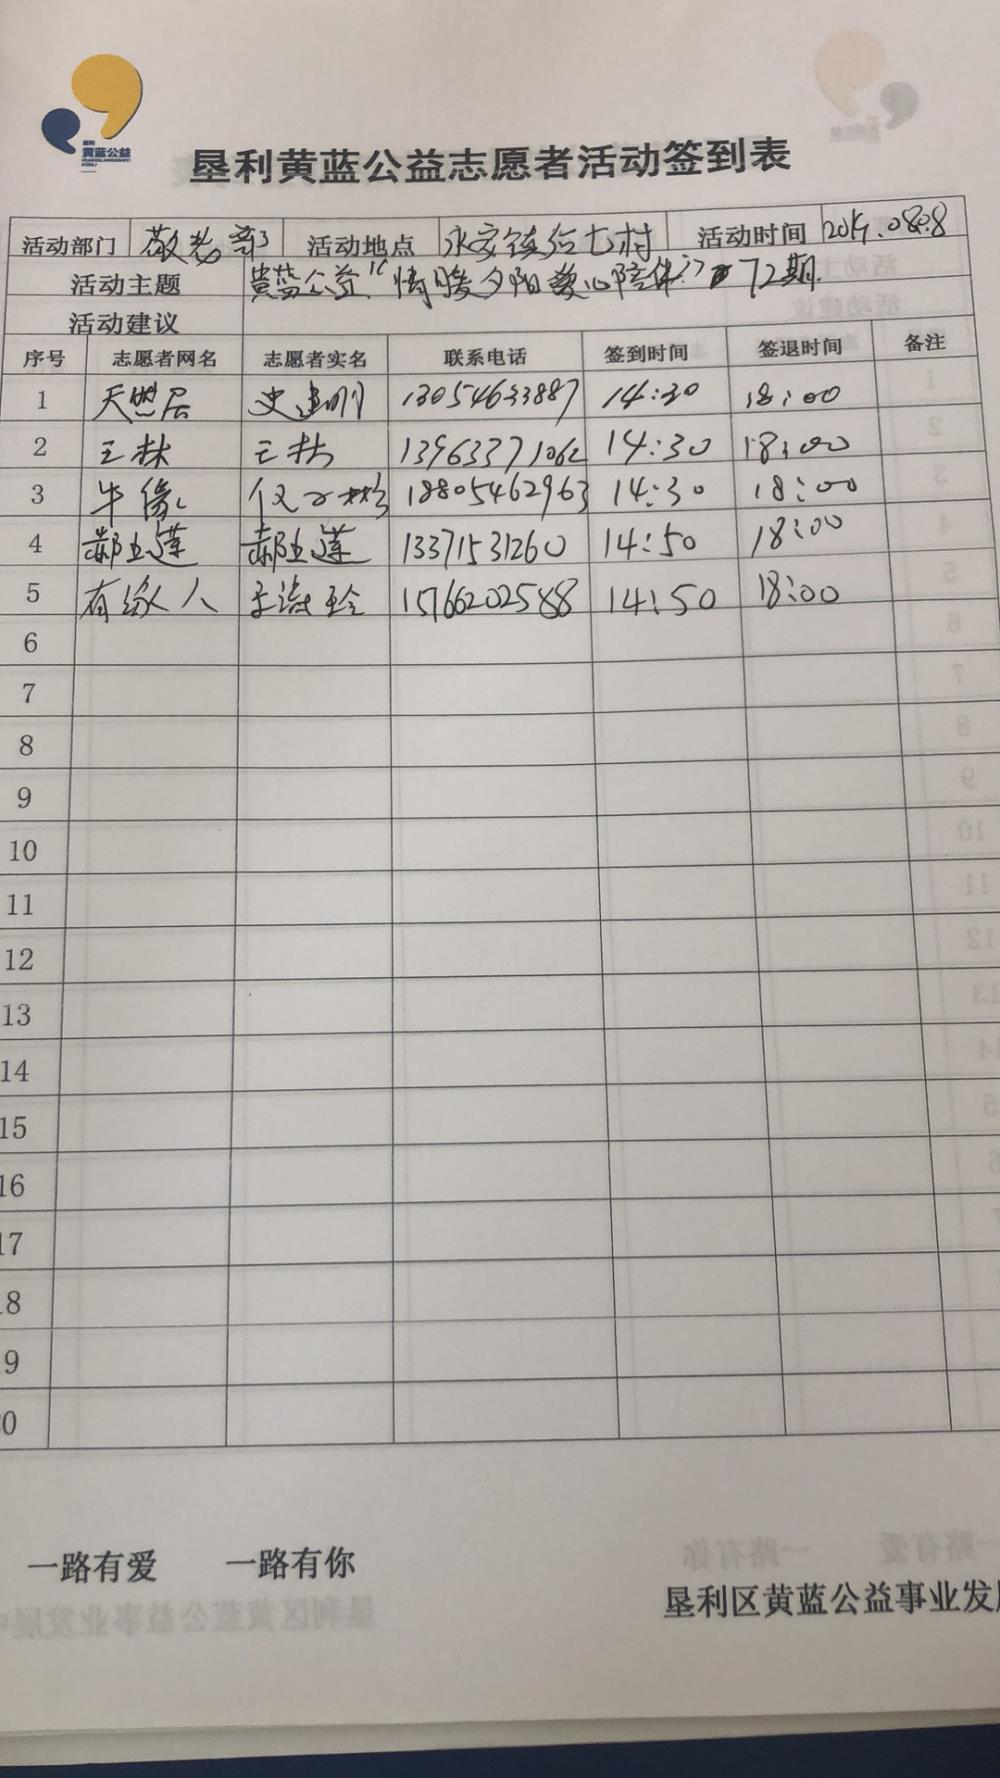 黄蓝公益
垦利黄蓝公益志愿者活动签到表
活动部门 敬老部 活动地点 永安镇 七村 活动时间 2019.08.08
活动主题 黄蓝公益“情暖夕阳爱心陪伴”72期.
活动建议
序号 志愿者网名 志愿者实名 联系电话 签到时间 签退时间 备注
1 天然居 史建明 13054633887 14:30 18:00
2 王林 王林 13963371062 14:30 18:00
3 牛缘 18805462963 14:30 18:00
4 郝立莲 郝立莲 13371531260 14:50 18:00
5 有缘人 15766202588 14:50 18:00
6
7
8
9
10
11
12
13
14
15
16
17
18
19
20
一路有爱 一路有你
垦利区黄蓝公益事业发展